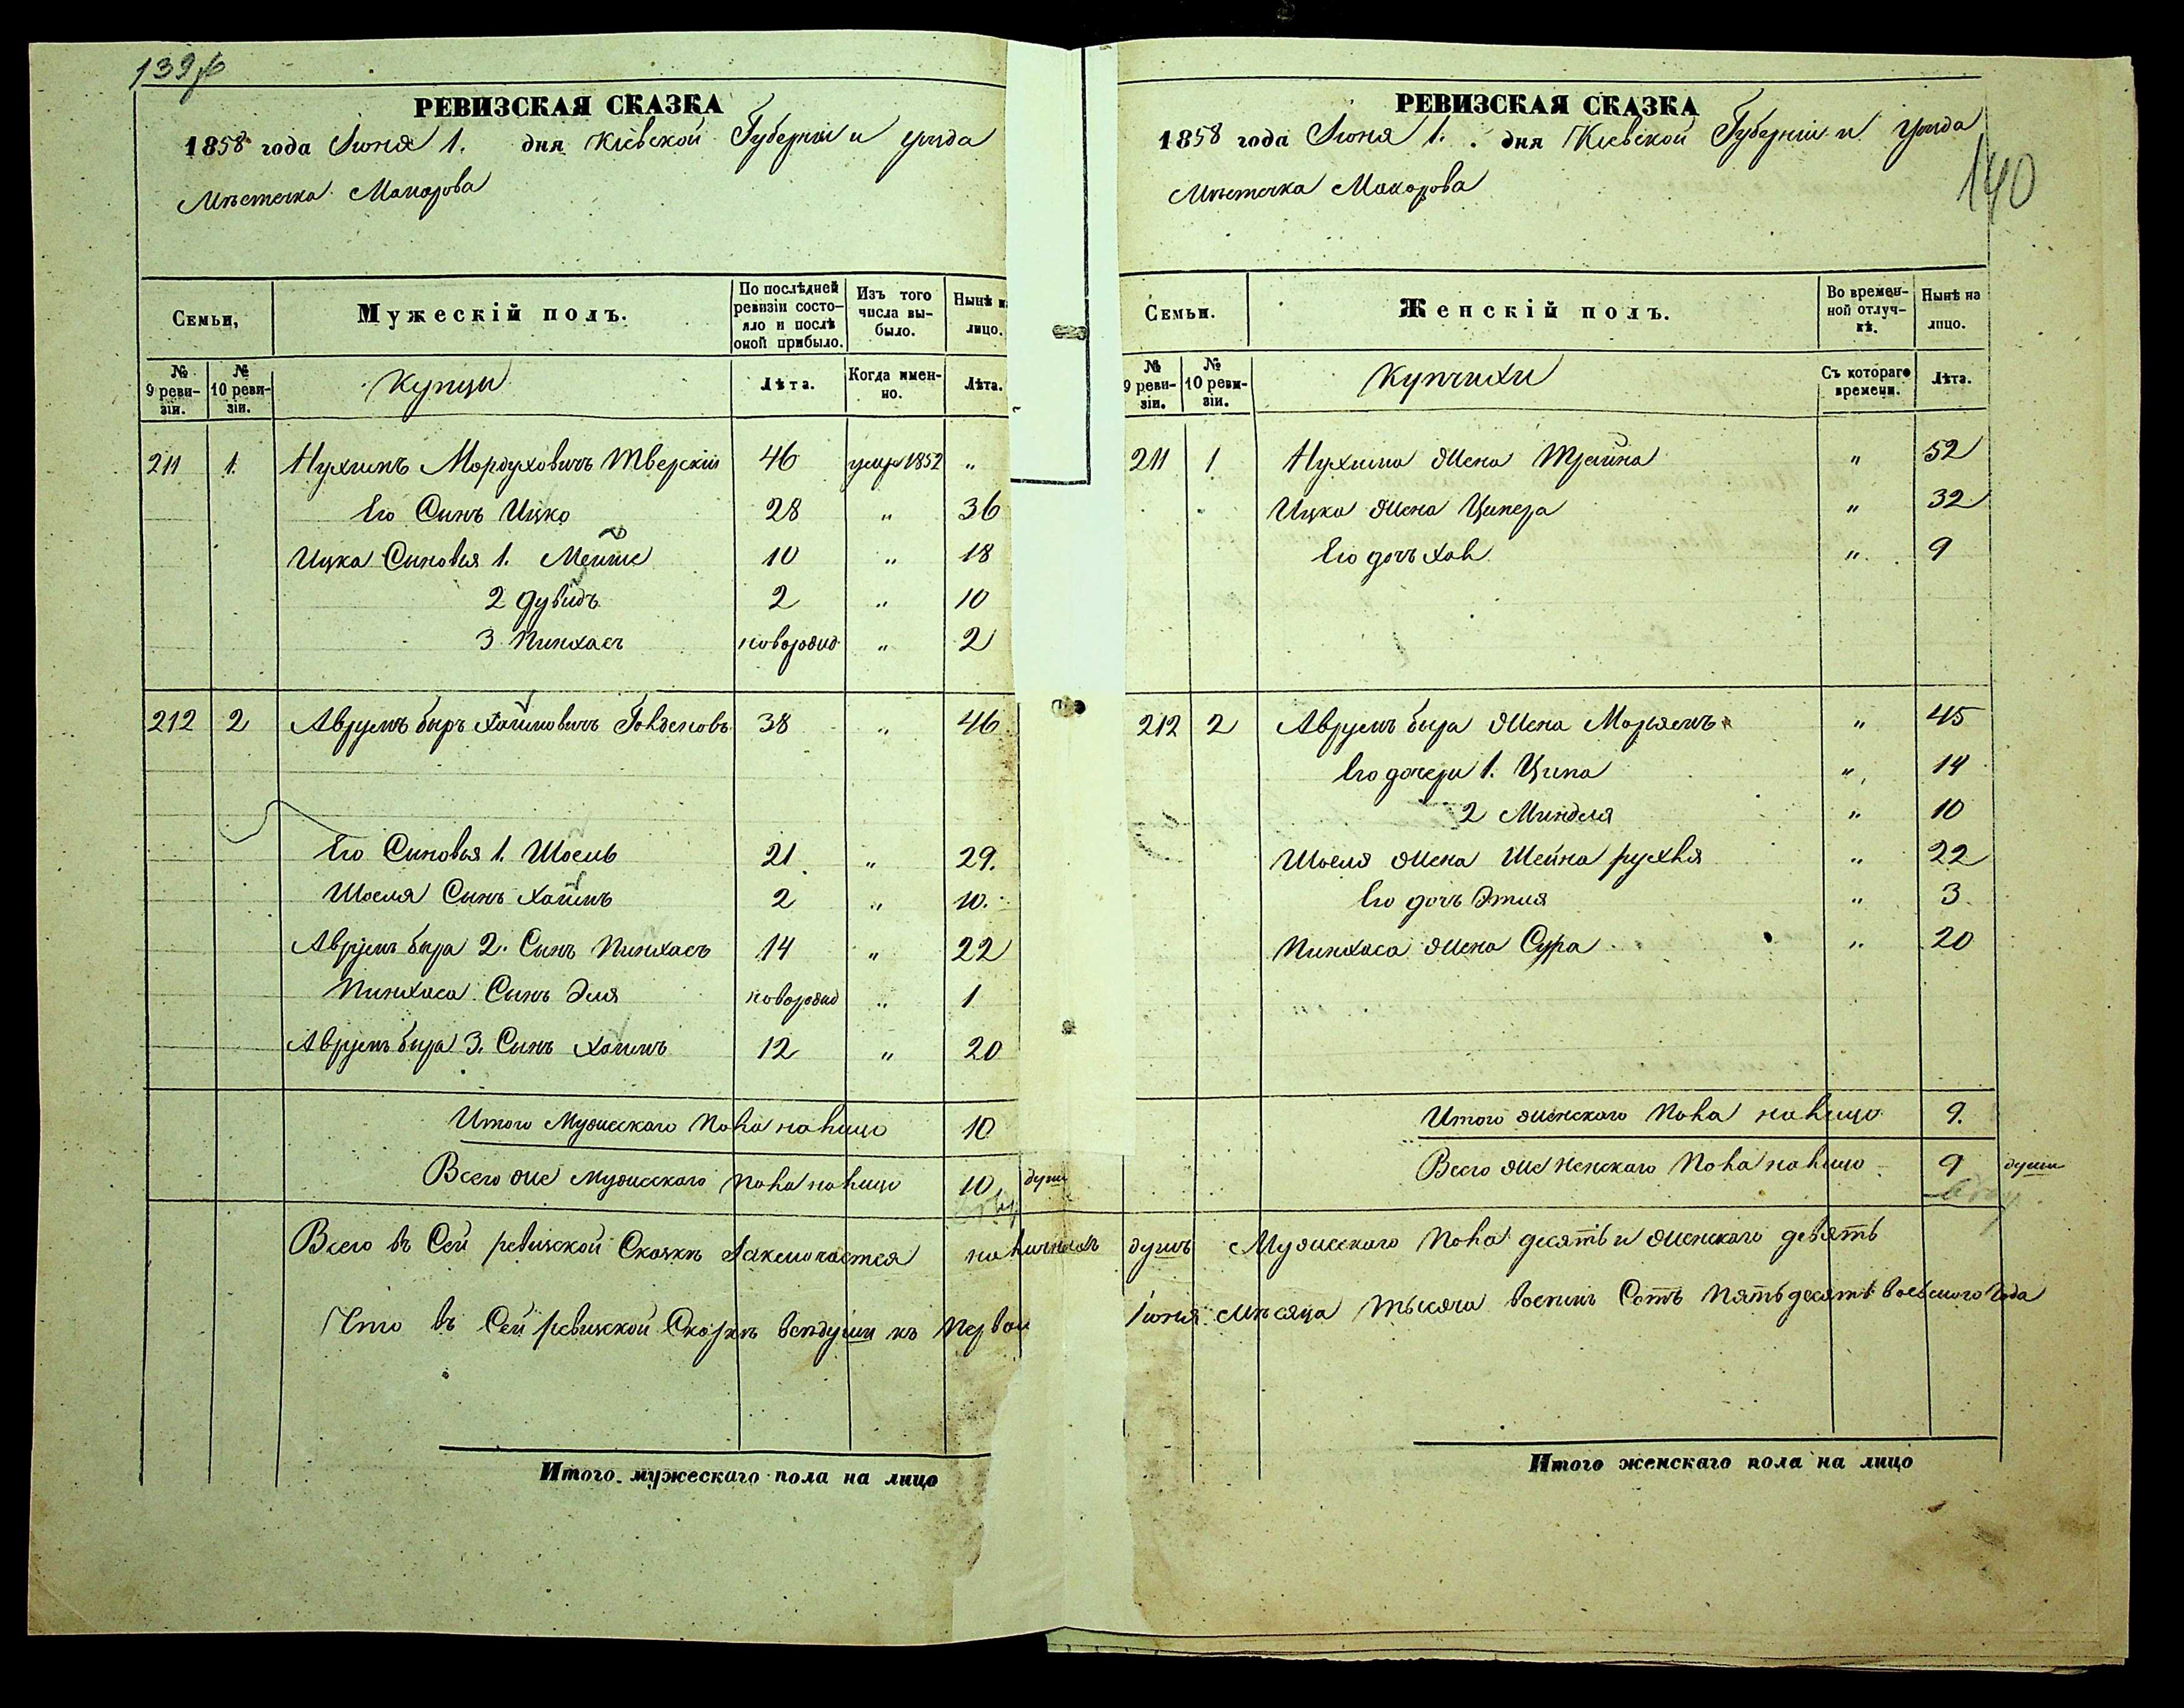 139 об
РЕВИЗСКАЯ СКАЗКА
1858 года Іюня 1. дня Кіевской Губерніи и уѣзда
Мѣстечка Макарова
Семьи,
Мужескій полъ.
По послѣдней ревизіи состояло и послѣ оной прибыло.
Изъ того числа выбыло.
Нынѣ н
лицо.
№ 9 ревизіи.
№ 10 ревизіи.
Купцы
Лѣта.
Когда именно.
Лѣта.
211 1. Нухимъ Мордуховичъ Тверскій 46 умер 1852 "
Его Сынъ Ицко 28 " 36
Ицка Сыновья 1. 10 " 18
2 Дувидъ 2 " 10
3 Пинхасъ новорожд " 2
212 2 Аврумъ беръ Хаимовичъ 38 " 46
Его Сыновья 1. Шоель 21 " 29.
Шоеля Сынъ Хаимъ 2 " 10.
Аврумъ бера 2. Сынъ Пинхасъ 14 " 22
Пинхаса Сынъ Эля новорожд " 1
Аврумъ бера 3. Сынъ Хаимъ 12 " 20
Итого Мужескаго пола на лицо 10
Всего же мужескаго пола на лицо 10 души
Всего въ Сей ревизской Сказкѣ Заключается наличныхъ
Что въ Сей ревизской Сказкѣ всѣ души къ Перво
Итого мужескаго пола на лицо
РЕВИЗСКАЯ СКАЗКА
1858 года Іюня 1. дня Кіевской Губерніи и уѣзда
Мѣстечка Макарова
140
Семьи.
Женскій полъ.
Во временной отлучкѣ.
Нынѣ на лицо.
№ 9 ревизіи.
№ 10 ревизіи.
Купчихи
Съ котораго времени.
Лѣта.
211 1 Нухима жена Трейна " 52
Ицка жена Ципера " 32
Его дочь " 9
212 2 Аврумъ бера жена Марьемъ " 45
Его дочери 1. Ципа " 14
2 Миндля " 10
Шоеля жена Шейна рухля " 22
Его дочь Этля " 3
Пинхаса жена Сура " 20
Итого женскаго пола на лицо 9.
Всего же женскаго пола на лицо 9 души
душъ Мужескаго пола десять и женскаго девять
Іюня мѣсяца тысяча восемь Сотъ Пятьдесятъ восьмого года
Итого женскаго пола на лицо